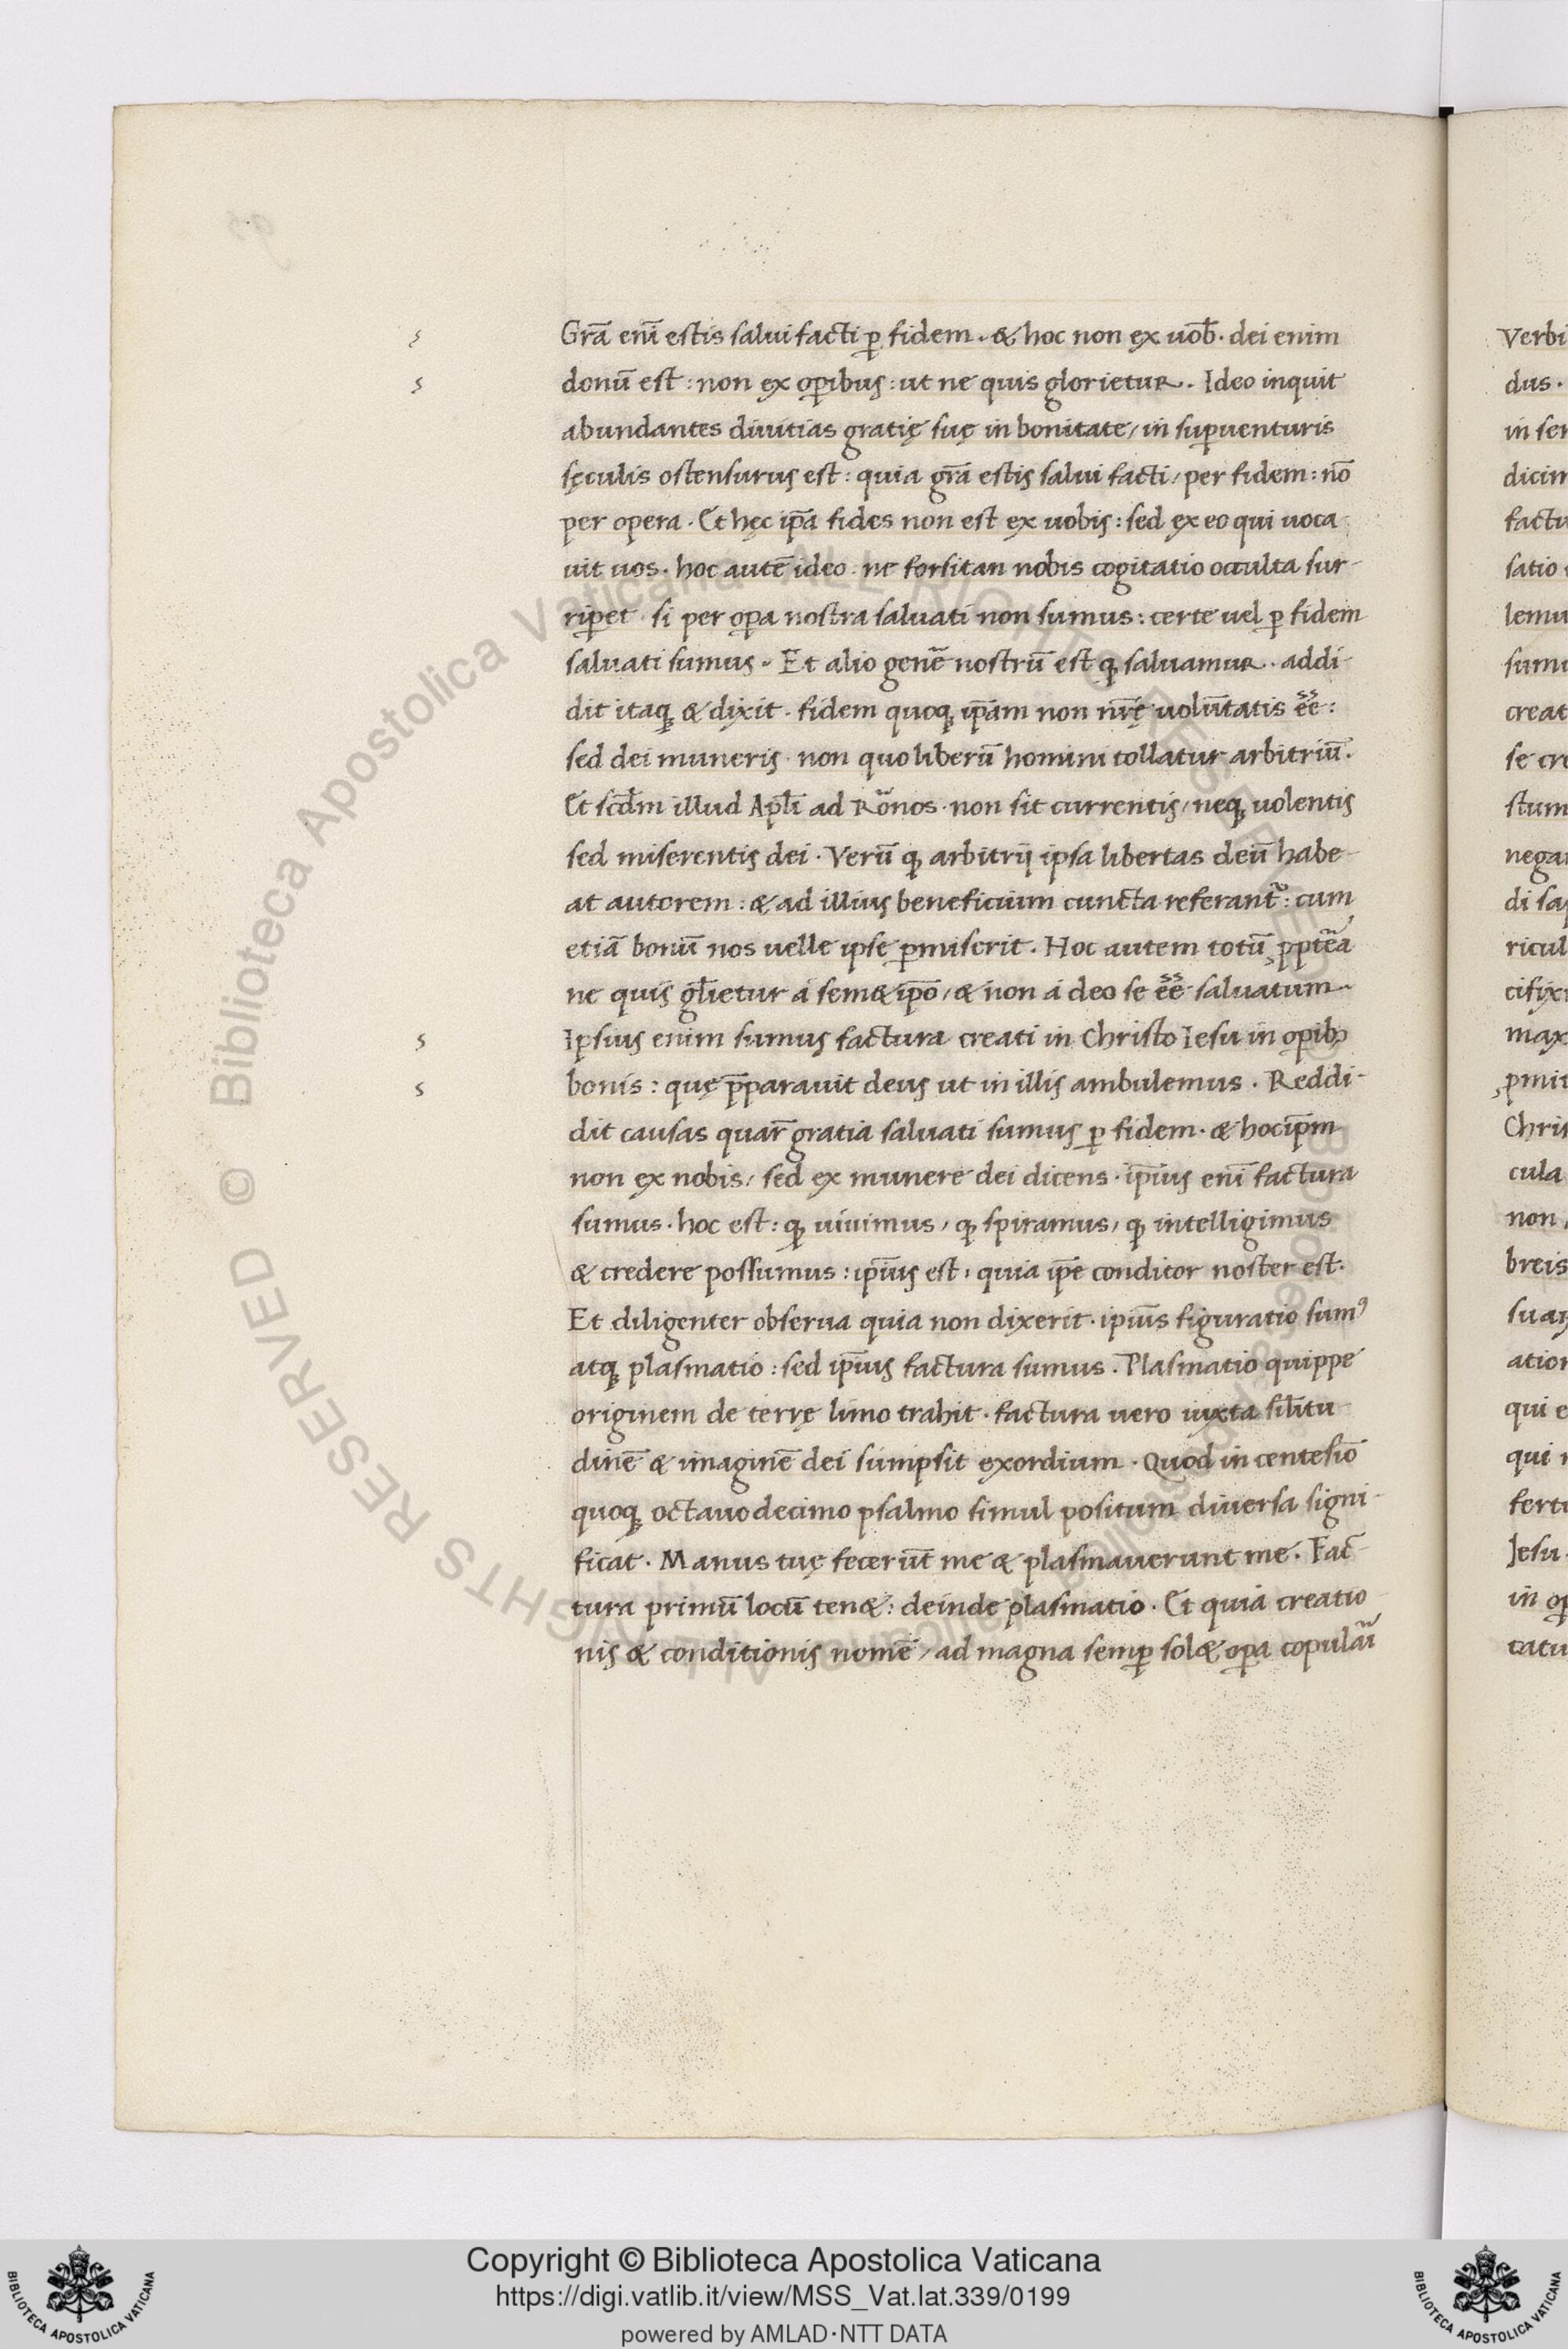 Grā enī estis salui facti ꝑ fidem. & hoc non ex uob̄. dei enim
donū est: non ex oꝑibus: ut ne quis glorietur. Ideo inquit
abundantes diuitias gratię suę in bonitate/ in suꝑuenturis
sęculis ostensurus est: quia grā estis salui facti/ per fidem: nō
per opera. Et hęc ip̄a fides non est ex uobis: sed ex eo qui uoca
uit uos. hoc autē ideo. ne forsitan nobis cogitatio occulta sur-
riꝑet. si per oꝑa nostra saluati non sumus: certe uel ꝑ fidem
saluati sumus. Et alio genē nostrū est qꝫ saluamur. addi-
dit itaqꝫ & dixit. fidem quoqꝫ ip̄am non nr̄ę uolūtatis ēē:
sed dei muneris. non quo liberū homini tollatur arbitriū.
Et scd̄m illud Apl̄i ad Rōnos. non sit currentis/ neqꝫ uolentis
sed miserentis dei. Verū qꝫ arbitrij ipsa libertas deū habe-
at autorem: & ad illius beneficium cuncta referant᷑: cum
etiā bonū nos uelle ipse ꝑmiserit. Hoc autem totū ꝓptēa
ne quis gl̄ietur a sem&ip̄o/ & non a deo se ēē saluatum.
Ipsius enim sumus factura creati in Christo Iesu in oꝑibꝫ
bonis: quę p̄parauit deus ut in illis ambulemus. Reddi-
dit causas quar̄ gratia saluati sumus ꝑ fidem. & hoc ip̄m
non ex nobis/ sed ex munere dei dicens. ip̄ius enī factura
sumus. hoc est: qꝫ uiuimus/ qꝫ spiramus/ qꝫ intelligimus
& credere possumus: ip̄ius est. quia ip̄e conditor noster est.
Et diligenter obserua quia non dixerit. ipiūs figuratio sumꝰ
atqꝫ plasmatio: sed ip̄ius factura sumus. Plasmatio quippe
originem de terrę limo trahit. factura uero iuxta sil̄itu
dinē & imaginē dei sumpsit exordium. Quod in centesiō
quoqꝫ octauodecimo psalmo simul positum diuersa signi-
ficat. Manus tuę fecerūt me & plasmauerunt me. Fac-
tura primū locū ten&: deinde plasmatio. Et quia creatio
nis & conditionis nomē/ ad magna semꝑ sol& oꝑa copulāi
Verbi
dus.
in ser
dicim
factu
satio
lemu
sumu
creat
se cre
stum
negar
di sa
ricul
cifix
max
ꝓmit
Chris
cula
non
breis
suaꝝ
ation
qui e
qui
fert
Jesu
in oꝑ
tatu
© Biblioteca Apostolica Vaticana ALL RIGHTS RESERVED
Copyright © Biblioteca Apostolica Vaticana
https://digi.vatlib.it/view/MSS_Vat.lat.339/0199
powered by AMLAD·NTT DATA
BIBLIOTECA APOSTOLICA VATICANA
BIBLIOTECA APOSTOLICA VATICANA